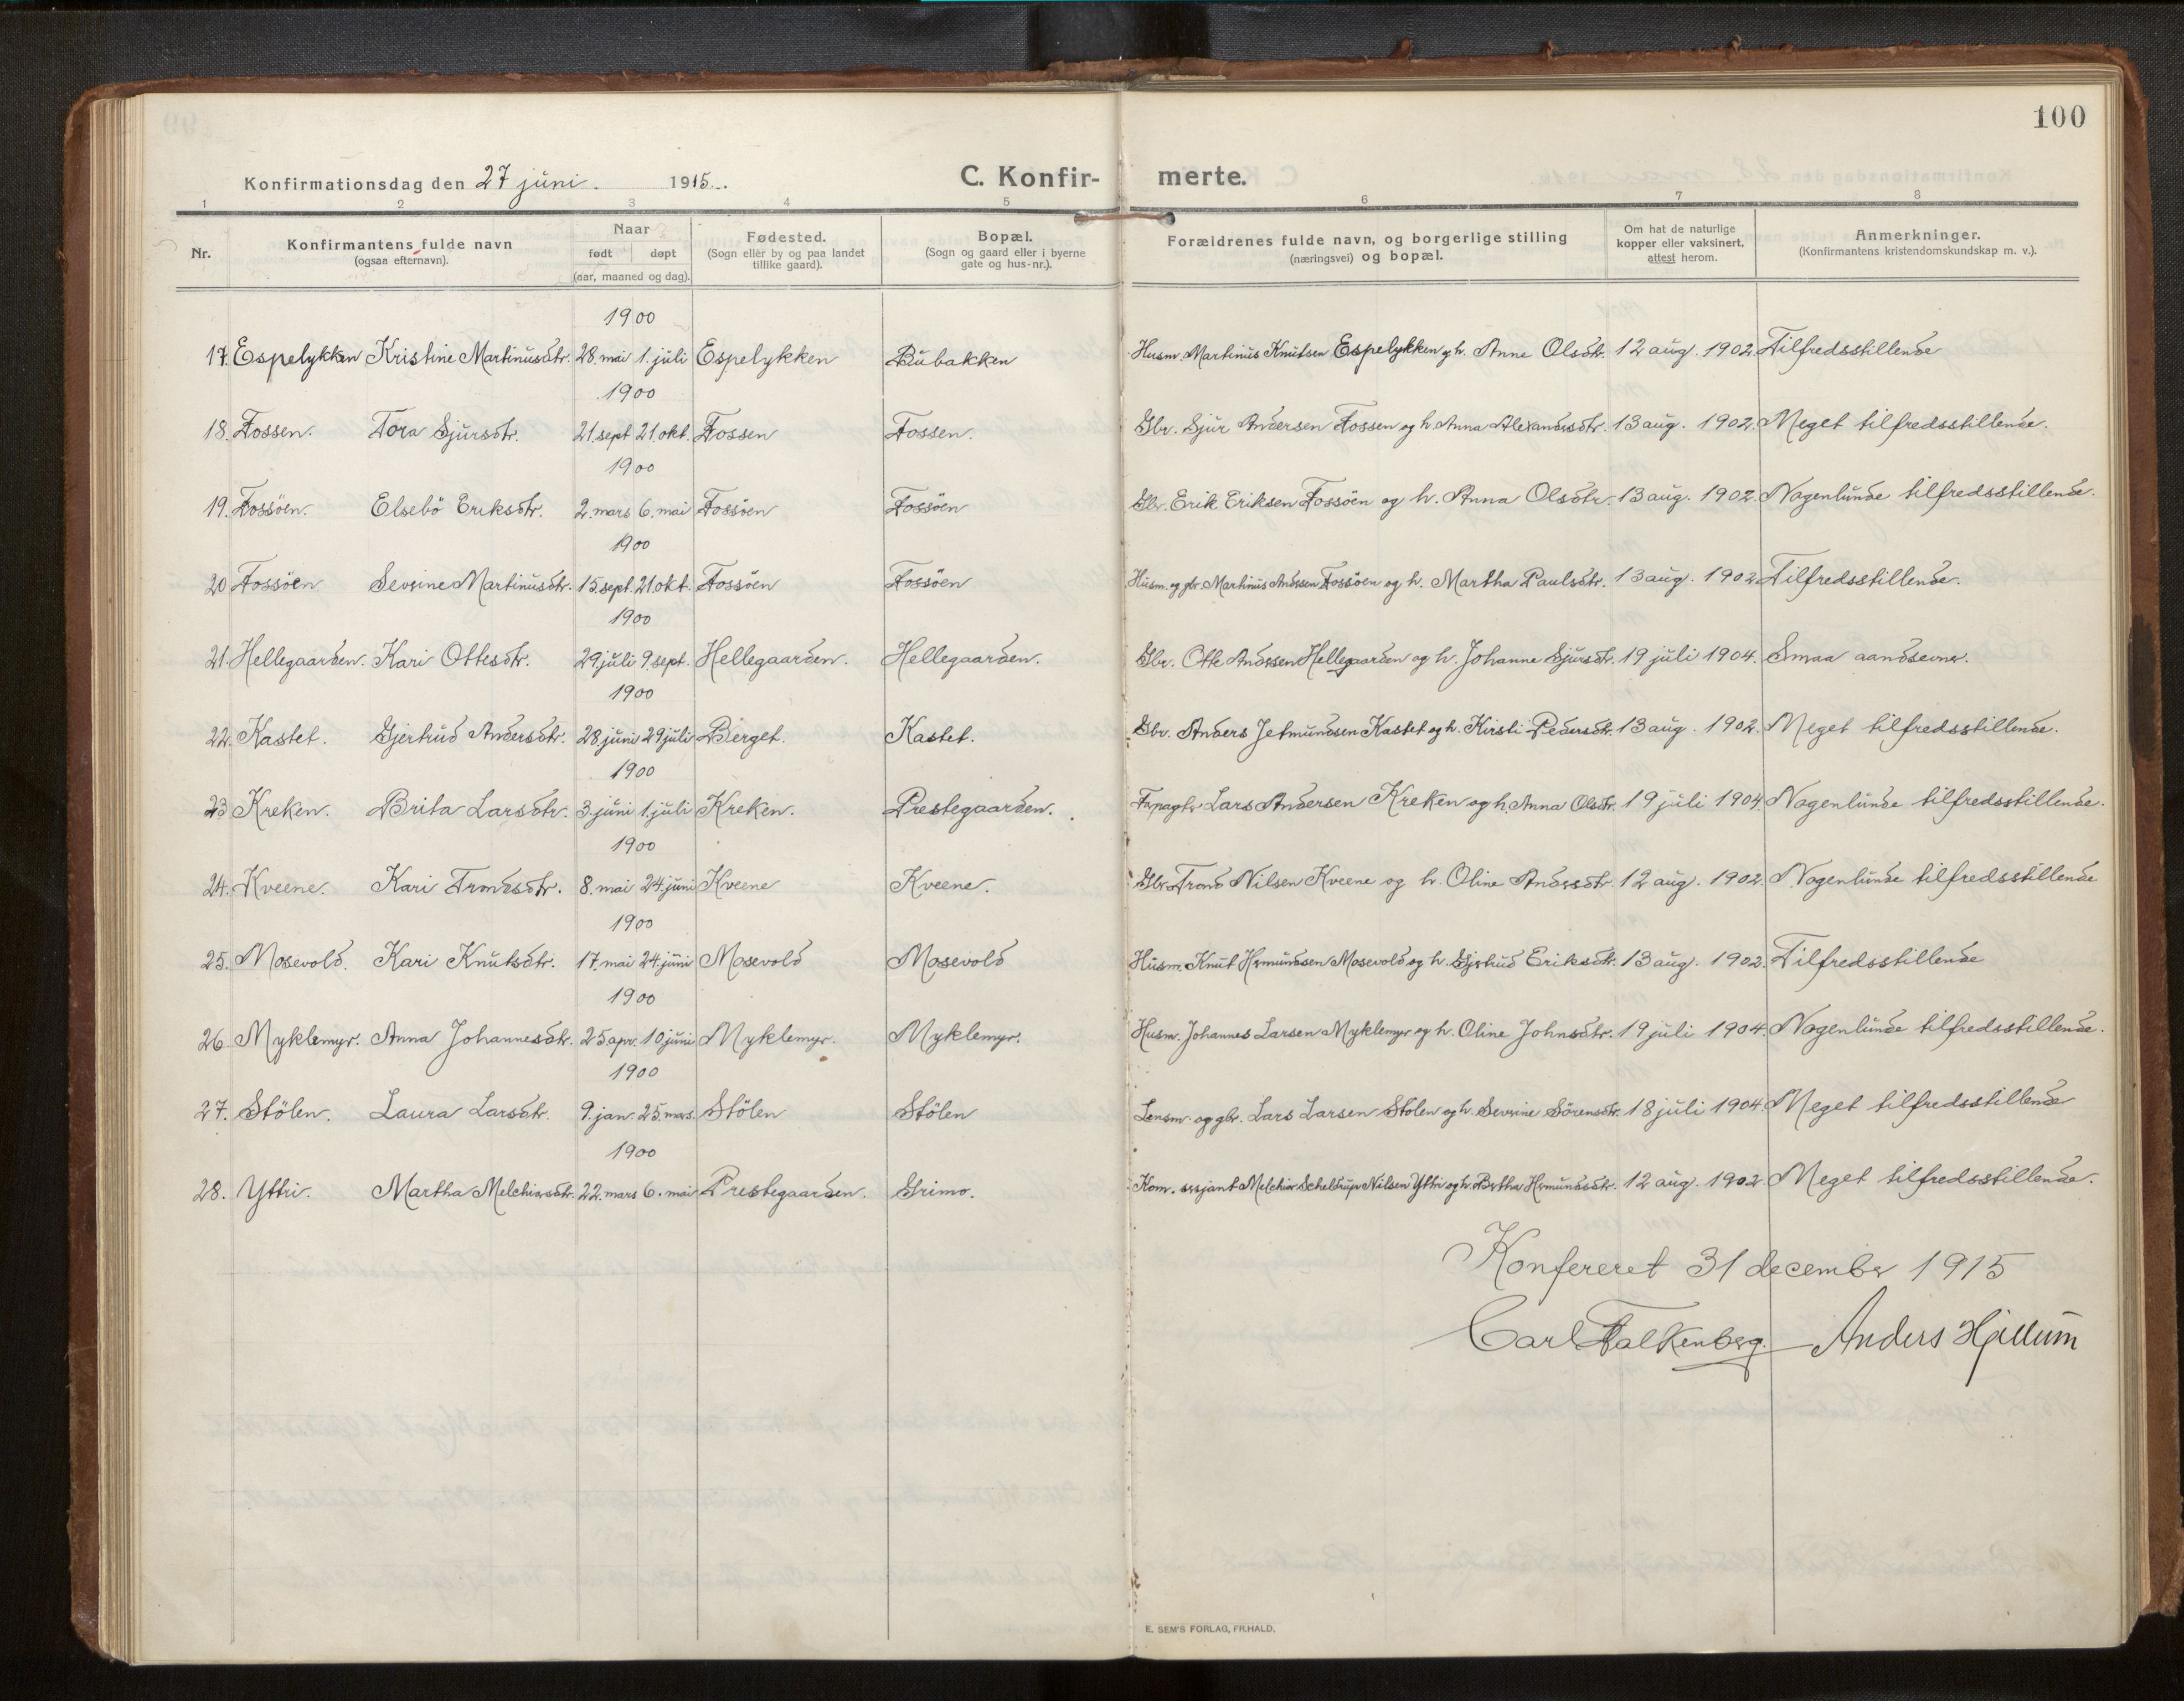 100
Konfirmationsdag den 27 juni. 1915.
C. Konfir- merte.
1 2 3 4 5 6 7 8
Nr. Konfirmantens fulde navn (ogsaa efternavn). Naar født døpt (aar, maaned og dag). Fødested. (Sogn eller by og paa landet tillike gaard). Bopæl. (Sogn og gaard eller i byerne gate og hus-nr.). Forældrenes fulde navn, og borgerlige stilling (næringsvei) og bopæl. Om hat de naturlige kopper eller vaksinert, attest herom. Anmerkninger. (Konfirmantens kristendomskundskap m. v.).
1900
17. Espelykken Kristine Martinusdtr. 28. mai 1. juli Espelykken Bubakken Husm. Martinus Knutsen Espelykken og h. Anne Olsdtr. 12 aug. 1902. Tilfredsstillende
1900
18. Fossen. Tora Sjursdtr. 21. sept 21. okt. Fossen Fossen. Gbr. Sjur Andersen Fossen og h. Anna Alexandersdtr. 13 aug. 1902. Meget tilfredsstillende.
1900
19. Fossöen. Elsebö Eriksdtr. 2. mars 6. mai Fossöen Fossöen Gbr. Erik Eriksen Fossöen og h. Anna Olsdtr. 13 aug. 1902. Nogenlunde tilfredsstillende.
1900
20 Fossöen Severine Martinusdtr. 15. sept. 21. okt. Fossöen Fossöen Husm. og gbr. Martinus Andersen Fossöen og h. Martha Paulsdtr. 13 aug. 1902 Tilfredsstillende.
1900
21. Hellegaarden. Kari Ottesdtr. 29 juli 9. sept. Hellegaarden. Hellegaarden. Gbr. Otte Andersen Hellegaarden og h. Johanne Sjursdtr. 19 juli 1904. Smaa aandsevner.
1900
22. Kastet. Gjertrud Andersdtr. 28. juni 29 juli Berget. Kastet. Gbr. Anders Jetmundsen Kastet og h. Kirsti Pedersdtr. 13 aug. 1902. Meget tilfredsstillende.
1900
23 Kreken. Brita Larsdtr. 3. juni 1. juli Kreken. Prestegaarden. Forpagter Lars Andersen Kreken og h. Anna Olsdtr. 19 juli 1904. Nogenlunde tilfredsstillende.
1900
24. Kveene. Kari Trondsdtr. 8. mai 24. juni Kveene Kveene. Gbr. Trond Nilsen Kveene og h. Oline Andersdtr. 12 aug. 1902. Nogenlunde tilfredsstillende
1900
25. Mosevold. Kari Knutsdtr. 17. mai 24. juni Mosevold Mosevold Husm. Knut Hermundsen Mosevold og h. Gjertrud Eriksdtr. 13 aug. 1902. Tilfredsstillende
1900
26. Myklemyr. Anna Johannesdtr. 25. apr. 10 juni Myklemyr. Myklemyr. Husm. Johannes Larsen Myklemyr og h. Oline Johnsdtr. 19 juli 1904. Nogenlunde tilfredsstillende.
1900
27. Stölen. Laura Larsdtr. 9. jan. 25. mars. Stölen Stölen Lensm. og gbr. Lars Larsen Stölen og h. Severine Sörensdtr. 18 juli 1904. Meget tilfredsstillende
1900
28. Yttri. Martha Melchiorsdtr. 22. mars 6. mai Prestegaarden. Grimo. Kom. sersjant Melchior Scheldrup Nilsen Yttri og h. Bertha Hermundsdtr. 12 aug. 1902. Meget tilfredsstillende.
Konfereret 31 december 1915
Carl Falkenberg. Anders Hjellum
E. SEM'S FORLAG, FR.HALD.